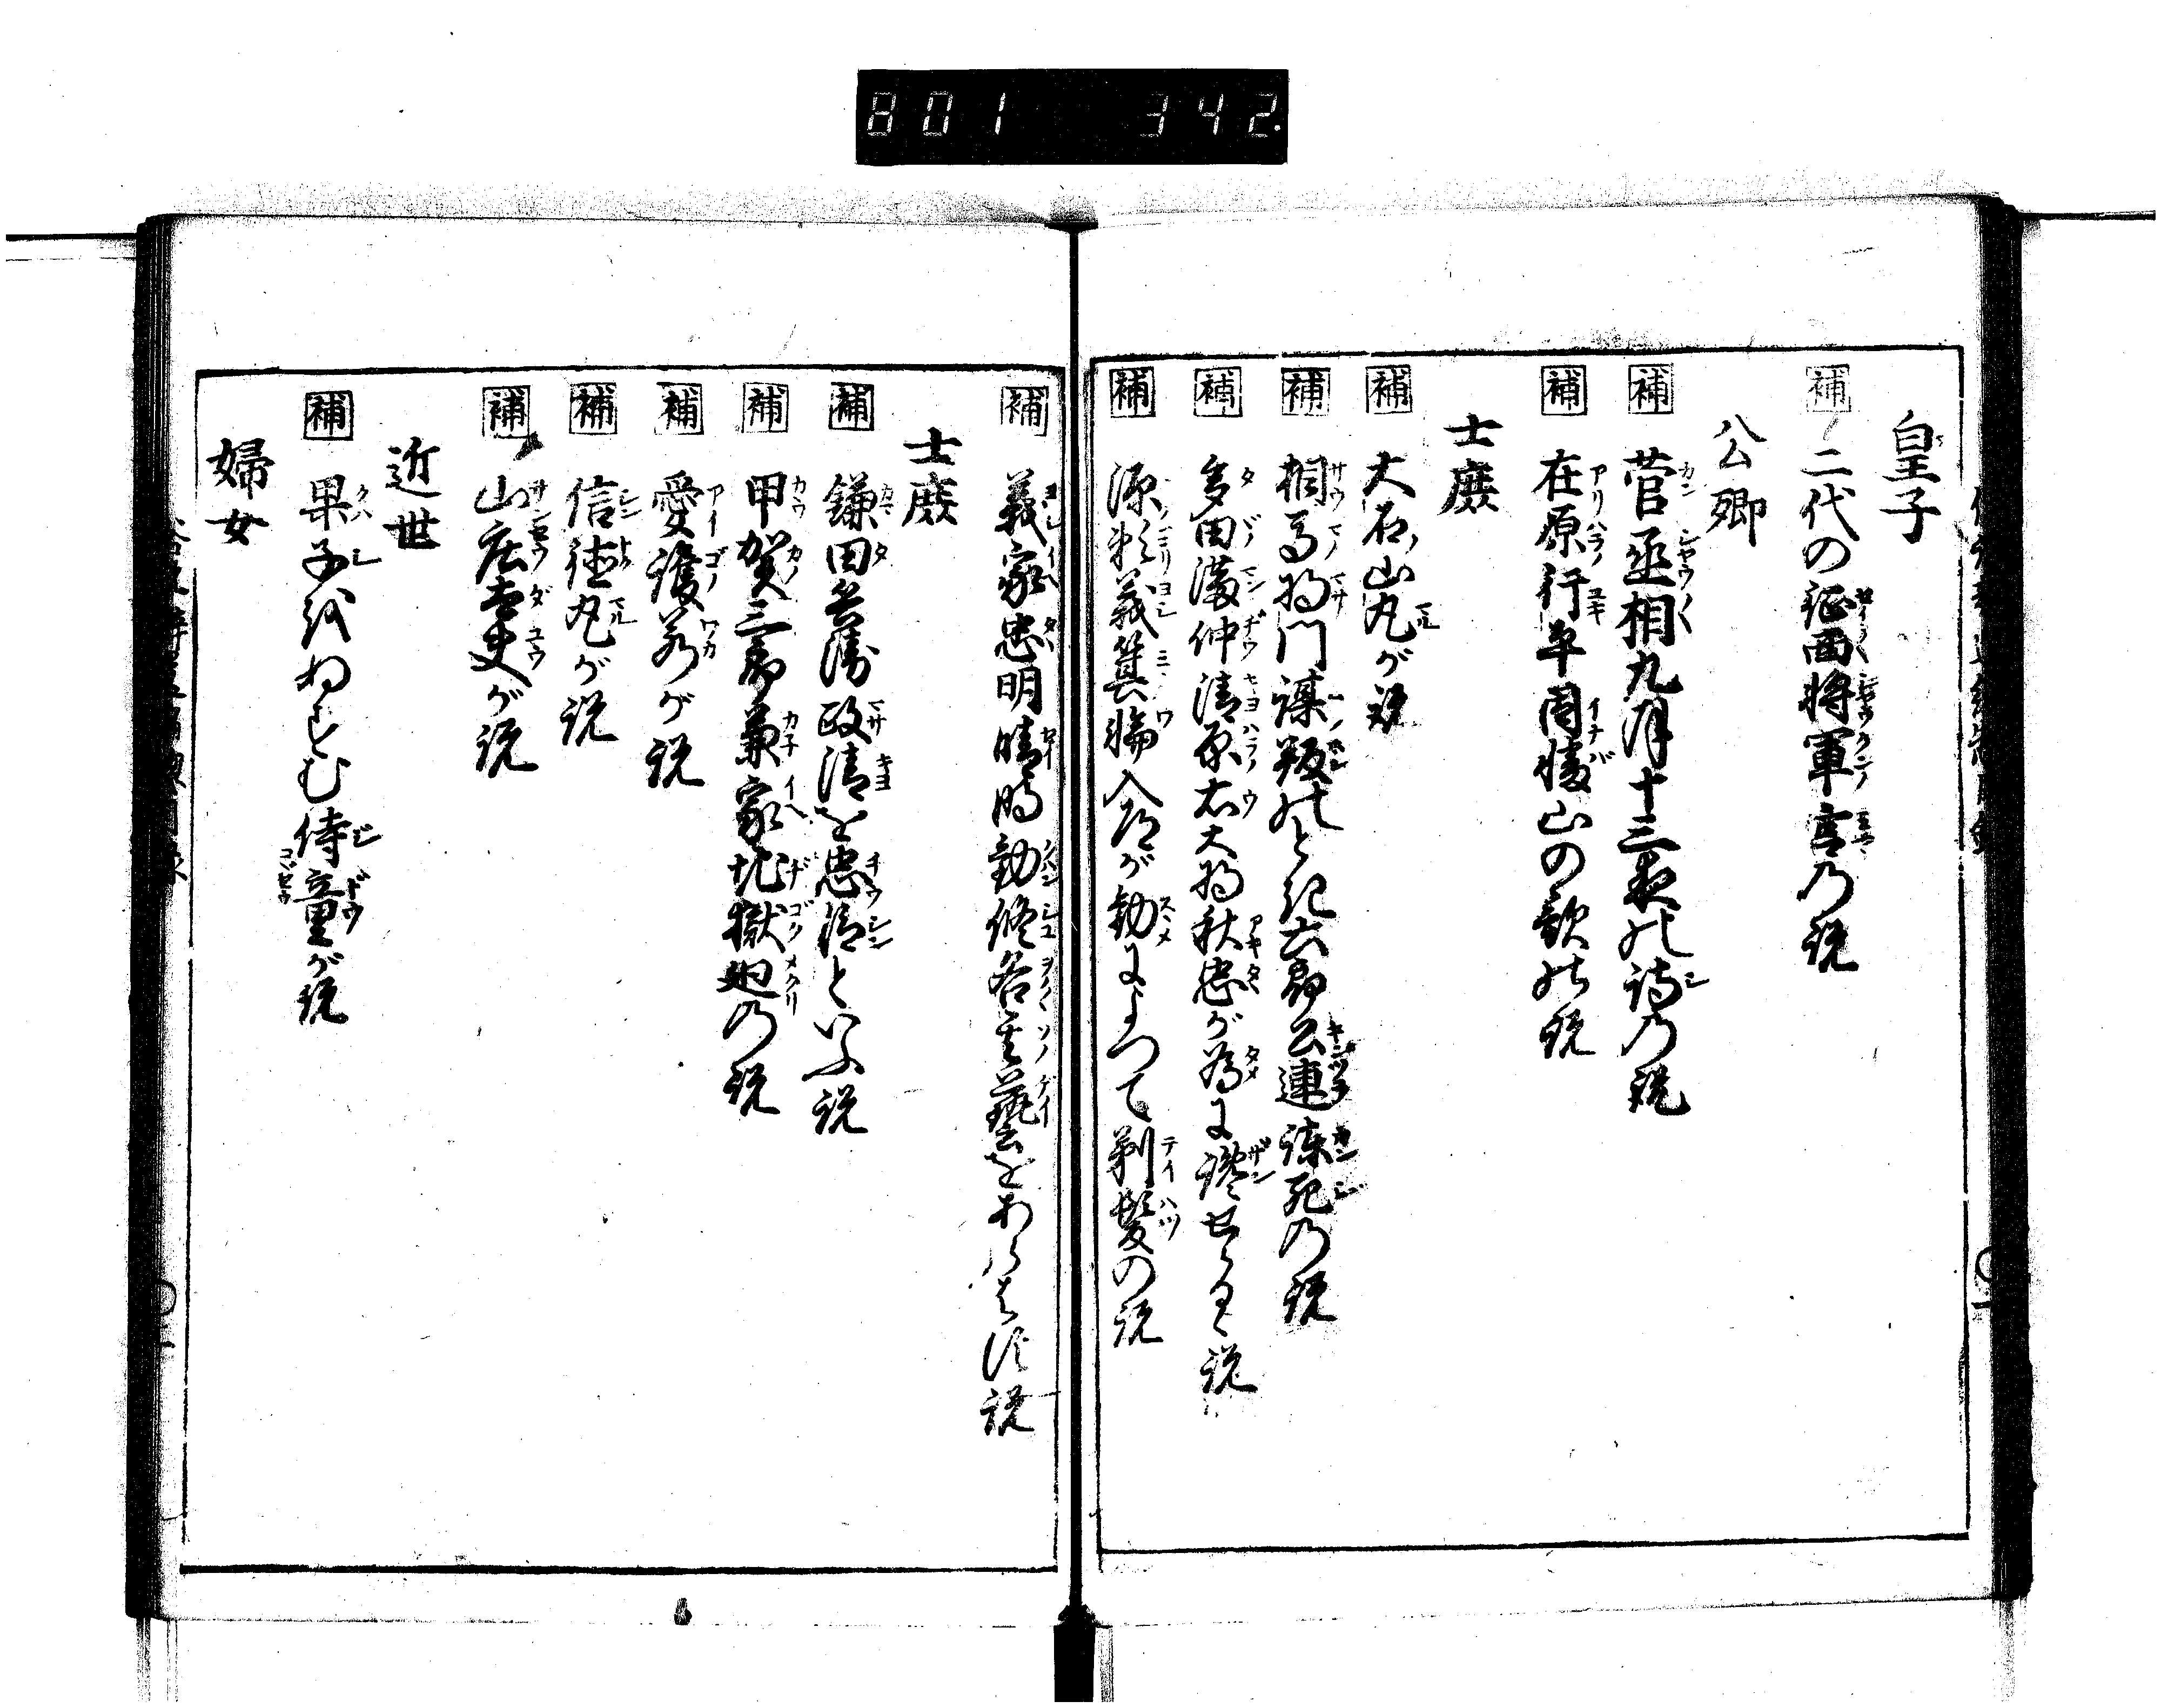 801 342.
皇子
補 二代の征西将軍宮乃説
公卿
補 菅丞相九月十三夜の詩乃説
補 在原行平因幡山の歌の説
士庶
補 大石山丸が説
補 相馬将門謀叛のとき六郎公連諫死乃説
補 多田満仲清原右大将秋忠が為に讒せらるゝ説
補 源頼義箕輪入道が勧によつて剃髪の説
補 義家忠明晴明勧修各其藝をあらはす説
士庶
補 鎌田兵衛政清を忠臣といふ説
補 甲賀三郎兼家地獄廻乃説
補 愛護若が説
補 信徳丸が説
補 山庄太夫が説
近世
補 菓子をぬすむ侍童が説
婦女